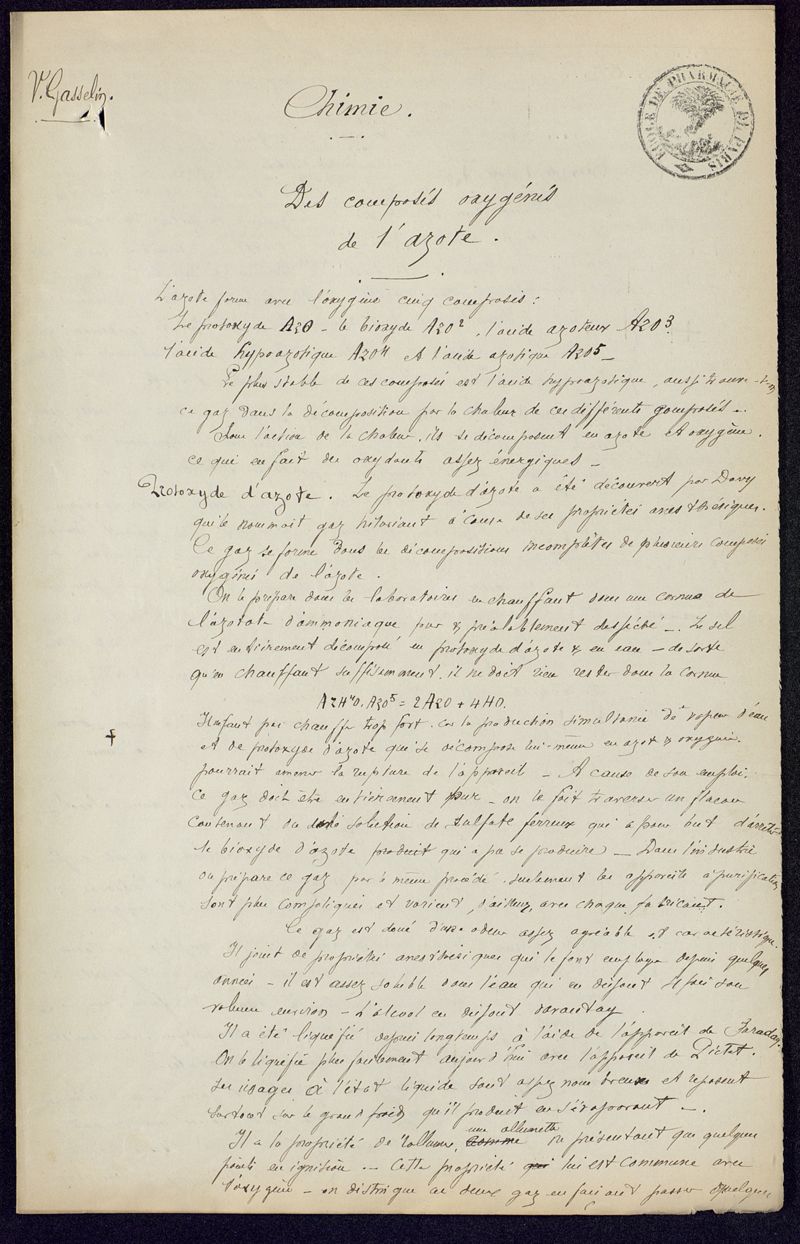 Vr Gasselin.
ECOLE DE PHARMACIE DE PARIS
Chimie.
Des composés oxygénés
de l'azote.
L'azote forme avec l'oxygène cinq composés :
Le protoxyde AzO - le bioxyde AzO2, l'acide azoteux AzO3
l'acide hypoazotique AzO4 et l'acide azotique AzO5 -
Le plus stable de ces composés est l'acide hypoazotique, aussi trouve-t-on
ce gaz dans la décomposition par la chaleur de ces différents composés -
Sous l'action de la chaleur, ils se décomposent en azote et oxygène.
ce qui en fait des oxydants assez énergiques -
Protoxyde d'azote. Le protoxyde d'azote a été découvert par Davy
qui le nommait gaz hilariant à cause de ses propriétés anesthésiques.
Ce gaz se forme dans les décompositions incomplètes de plusieurs composés
oxygénés de l'azote.
On le prépare dans les laboratoires en chauffant dans une cornue de
l'azotate d'ammoniaque pur & préalablement desséché -. Le sel
est entièrement décomposé en protoxyde d'azote & en eau - de sorte
qu'en chauffant suffisamment, il ne doit rien rester dans la cornue
AzH4O, AzO5 = 2AzO + 4HO.
Il ne faut pas chauffer trop fort, car la production simultanée de vapeur d'eau
et de protoxyde d'azote qui se décompose lui-même en azote & oxygène
pourrait amener la rupture de l'appareil - A cause de son emploi,
ce gaz doit être entièrement pur - on le fait traverser un flacon
contenant une solution de sulfate ferreux qui a pour but d'arrêter
le bioxyde d'azote produit qui a pu se produire - Dans l'industrie
on prépare ce gaz par le même procédé, seulement les appareils à purification
sont plus compliqués et varient, d'ailleurs, avec chaque fabricant.
Ce gaz est doué d'une odeur assez agréable et caractéristique.
Il jouit de propriétés anesthésiques qui le font employer depuis quelques
années - il est assez soluble dans l'eau qui en dissout son
volume environ - L'alcool en dissout davantage
Il a été liquéfié depuis longtemps à l'aide de l'appareil de Faraday.
On le liquéfie plus facilement aujourd'hui avec l'appareil de Pictet.
Ses usages à l'état liquide sont assez nombreux et reposent
surtout sur le grand froid qu'il produit en s'évaporant -.
Il a la propriété de rallumer, comme une allumette ne présentant que quelques
points en ignition - Cette propriété qui lui est commune avec
l'oxygène - on distingue ces deux gaz en faisant passer quelques